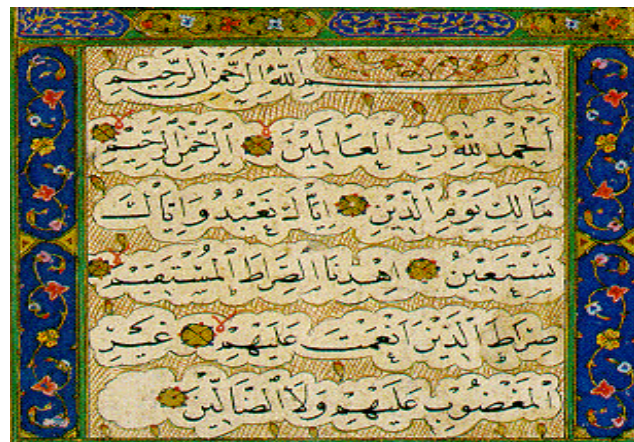 بِسْمِ ٱللَّهِ ٱلرَّحْمٰنِ ٱلرَّحِيمِ
اَلْحَمْدُ لِلّٰهِ رَبِّ ٱلْعَالَمِينَ ٱلرَّحْمٰنِ ٱلرَّحِيمِ
مَالِكِ يَوْمِ ٱلدِّينِ اِيَّاكَ نَعْبُدُ وَاِيَّاكَ
نَسْتَعِينُ اِهْدِنَا ٱلصِّرَاطَ ٱلْمُسْتَقِيمَ
صِرَاطَ ٱلَّذِينَ اَنْعَمْتَ عَلَيْهِمْ غَيْرِ
ٱلْمَغْضُوبِ عَلَيْهِمْ وَلَا ٱلضَّالِّينَ